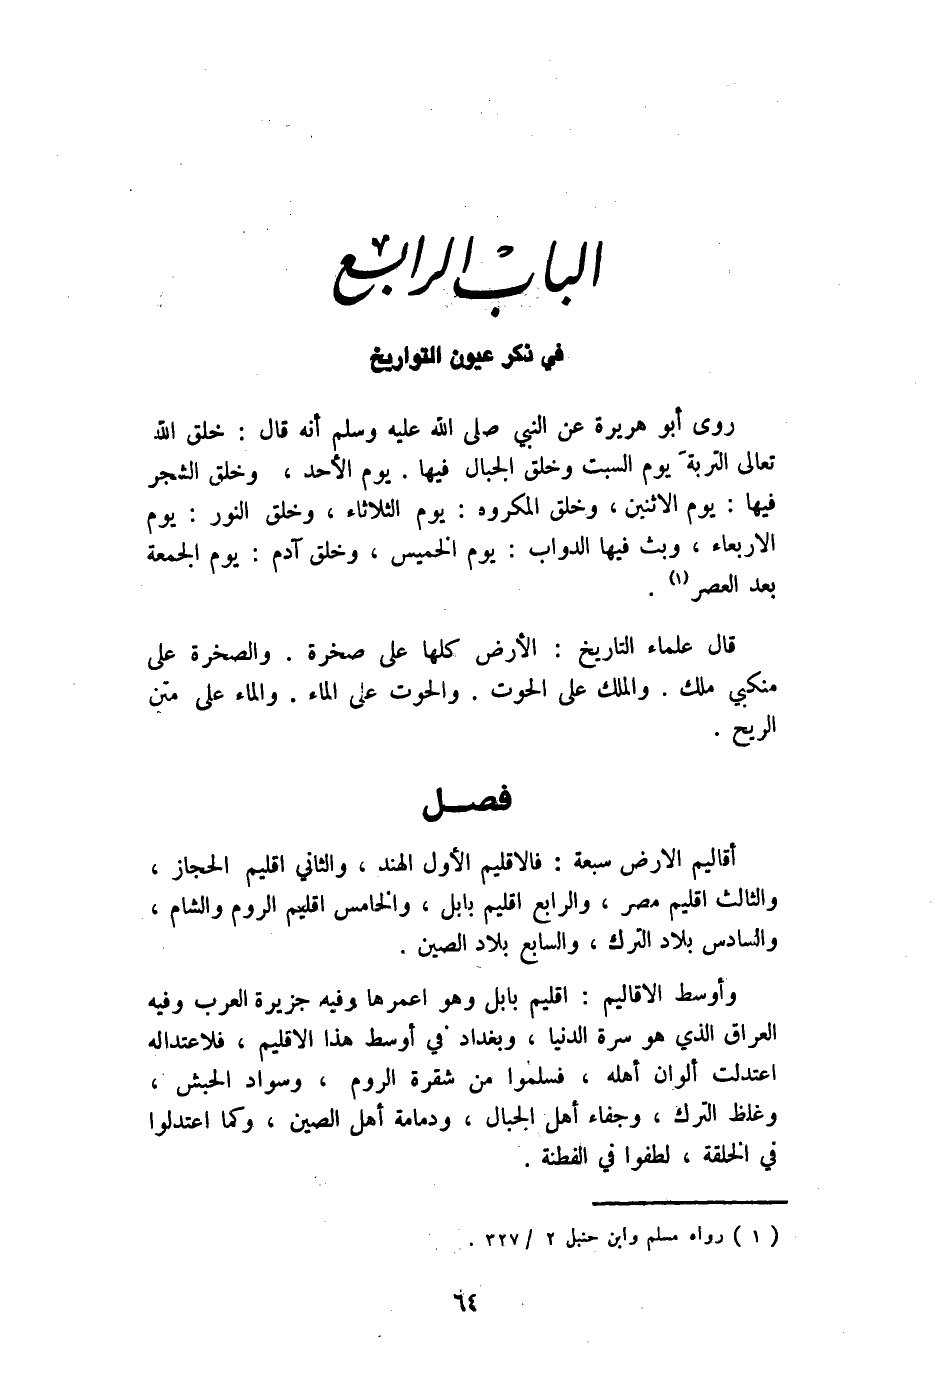 الباب الرابع
في ذكر عيون التواريخ
روى أبو هريرة عن النبي صلى الله عليه وسلم أنه قال : خلق الله
تعالى التربة يوم السبت وخلق الجبال فيها . يوم الأحد ، وخلق الشجر
فيها : يوم الاثنين ، وخلق المكروه : يوم الثلاثاء ، وخلق النور : يوم
الاربعاء ، وبث فيها الدواب : يوم الخميس ، وخلق آدم : يوم الجمعة
بعد العصر (١) .
قال علماء التاريخ : الأرض كلها على صخرة . والصخرة على
منكبي ملك . والملك على الحوت . والحوت على الماء . والماء على متن
الريح .
فصـــل
أقاليم الارض سبعة : فالاقليم الأول الهند ، والثاني اقليم الحجاز ،
والثالث اقليم مصر ، والرابع اقليم بابل ، والخامس اقليم الروم والشام ،
والسادس بلاد الترك ، والسابع بلاد الصين .
وأوسط الاقاليم : اقليم بابل وهو اعمرها وفيه جزيرة العرب وفيه
العراق الذي هو سرة الدنيا ، وبغداد في أوسط هذا الاقليم ، فلاعتداله
اعتدلت ألوان أهله ، فسلموا من شقرة الروم ، وسواد الحبش ،
وغلظ الترك ، وجفاء أهل الجبال ، ودمامة أهل الصين ، وكما اعتدلوا
في الخلقة ، لطفوا في الفطنة .
( ١ ) رواه مسلم وابن حنبل ٢ / ٣٢٧ .
٦٤